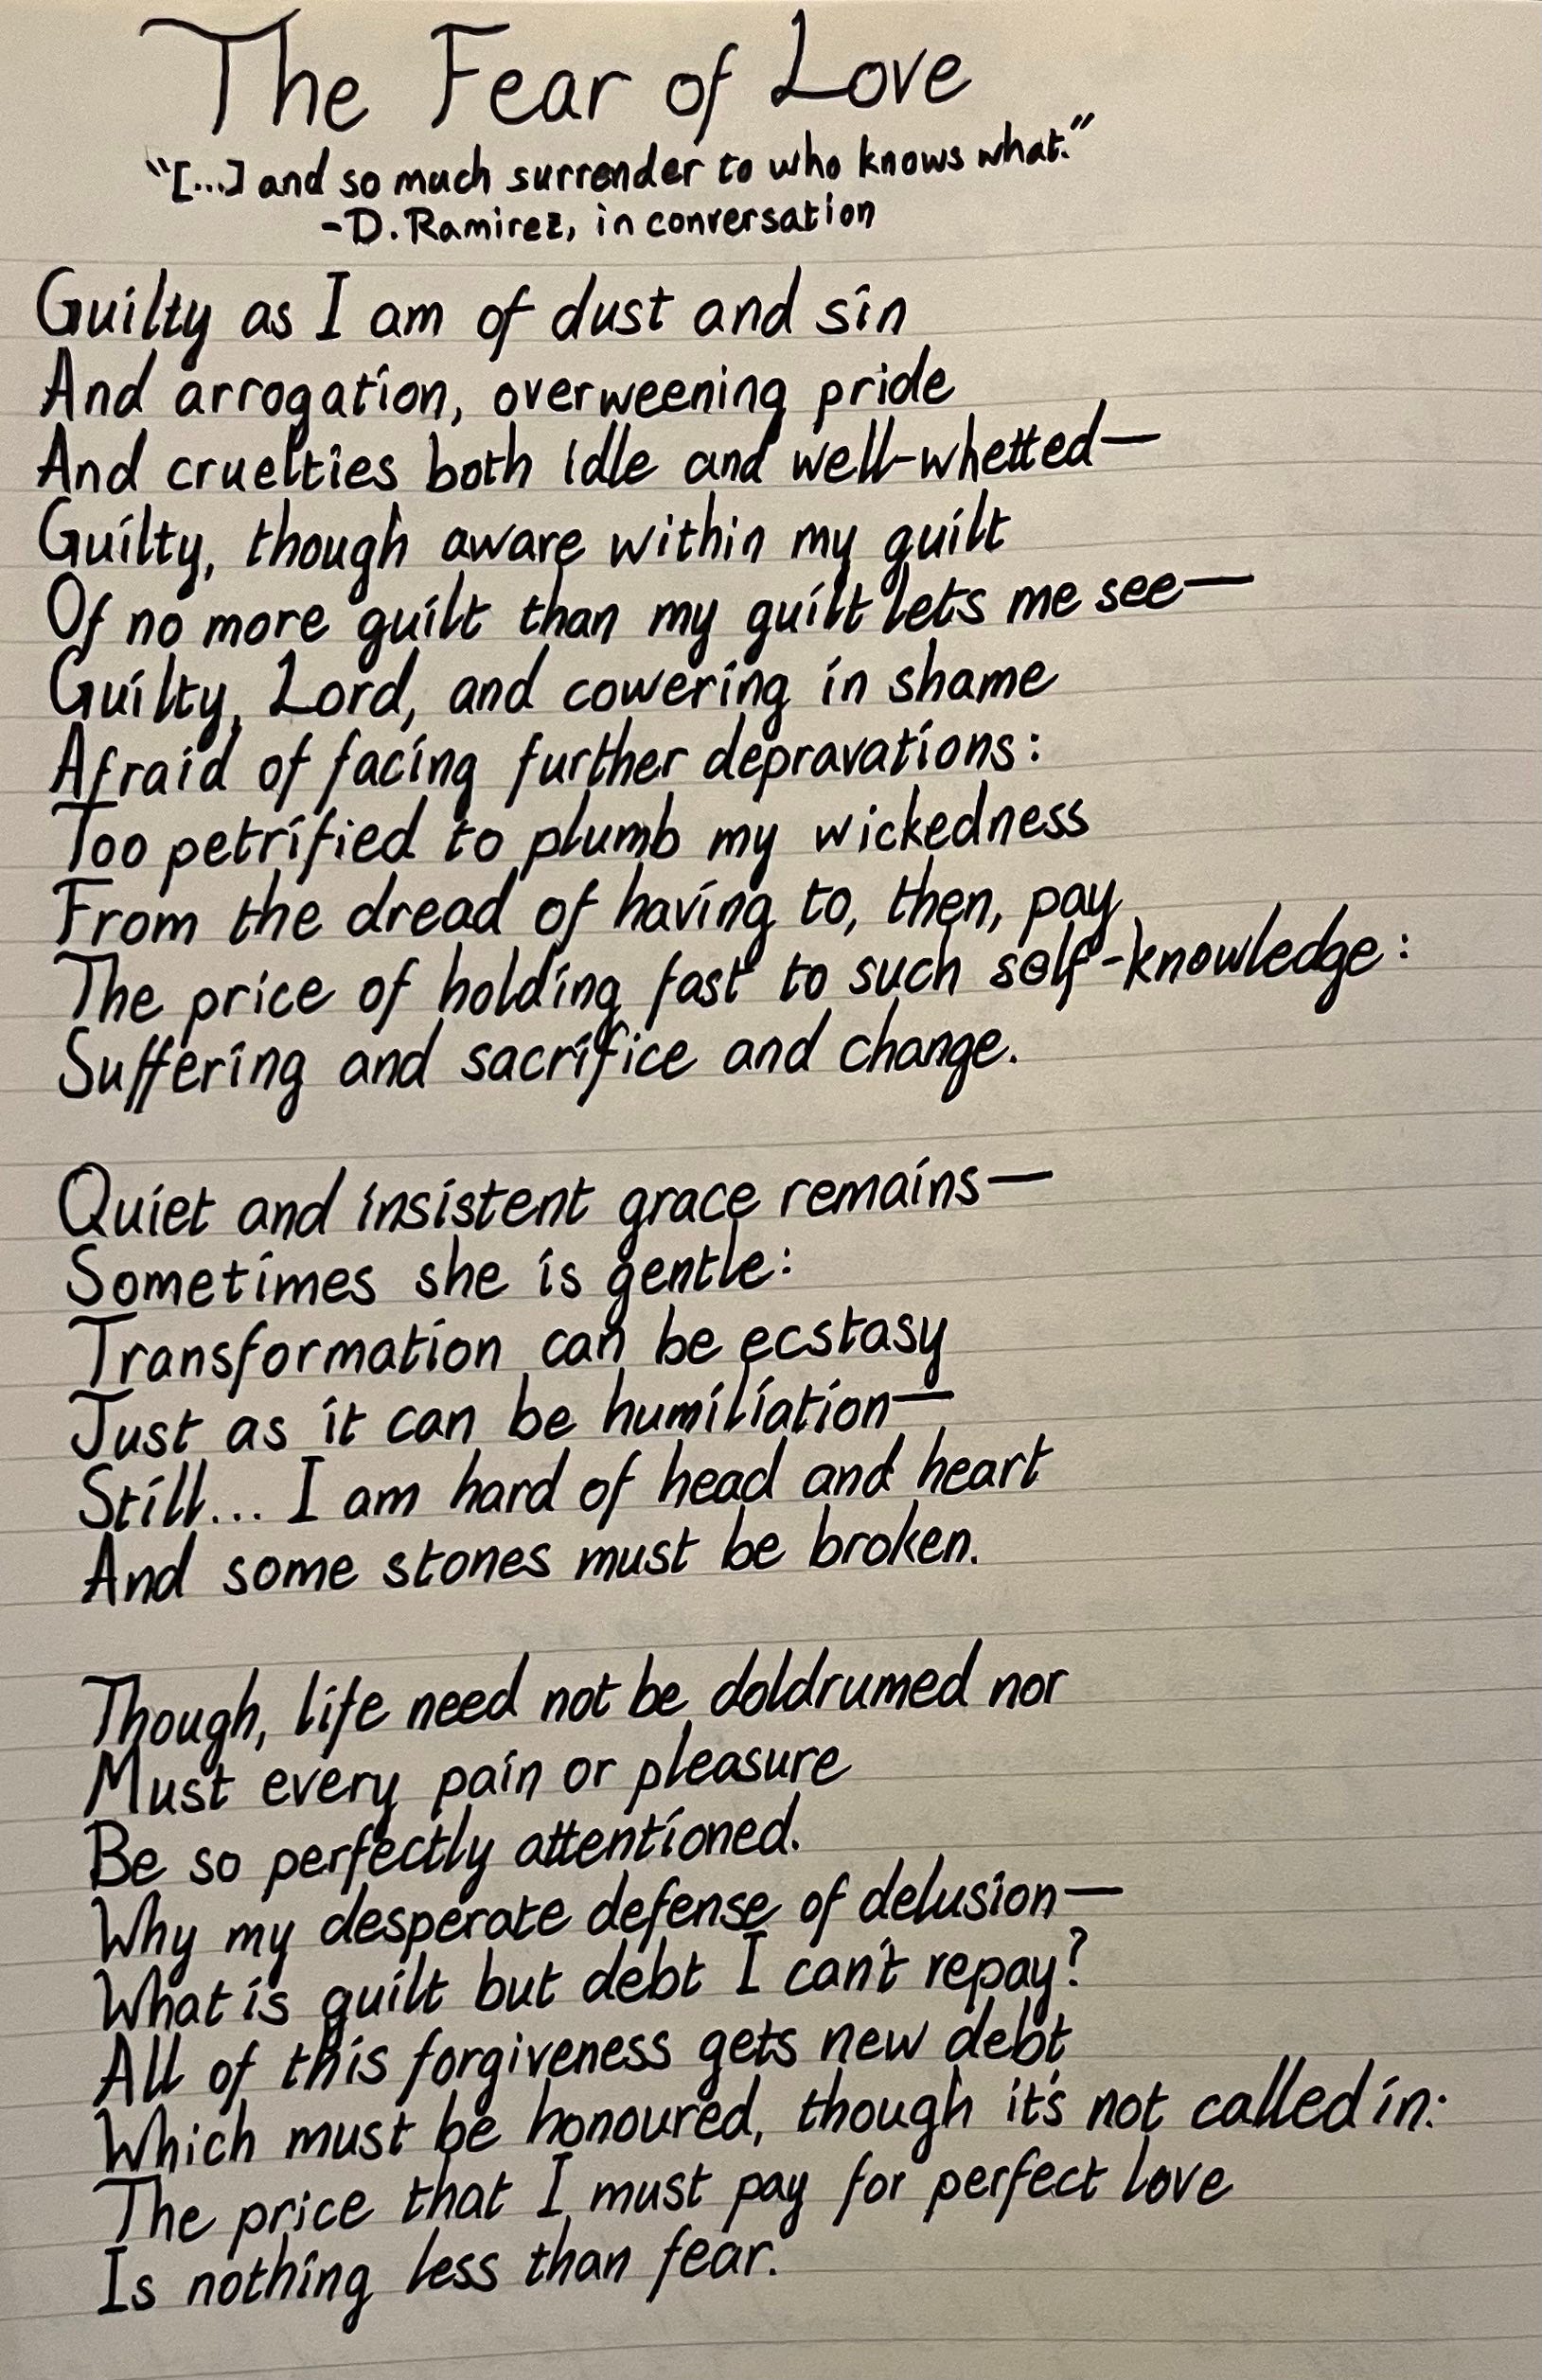 The Fear of Love
"[...] and so much surrender to who knows what."
-D. Ramirez, in conversation
Guilty as I am of dust and sin
And arrogation, overweening pride
And cruelties both idle and well-whetted—
Guilty, though aware within my guilt
Of no more guilt than my guilt lets me see—
Guilty, Lord, and cowering in shame
Afraid of facing further depravations:
Too petrified to plumb my wickedness
From the dread of having to, then, pay
The price of holding fast to such self-knowledge:
Suffering and sacrifice and change.
Quiet and insistent grace remains—
Sometimes she is gentle:
Transformation can be ecstasy
Just as it can be humiliation—
Still... I am hard of head and heart
And some stones must be broken.
Though, life need not be doldrumed nor
Must every pain or pleasure
Be so perfectly attentioned.
Why my desperate defense of delusion—
What is guilt but debt I can't repay?
All of this forgiveness gets new debt
Which must be honoured, though it's not called in:
The price that I must pay for perfect love
Is nothing less than fear.